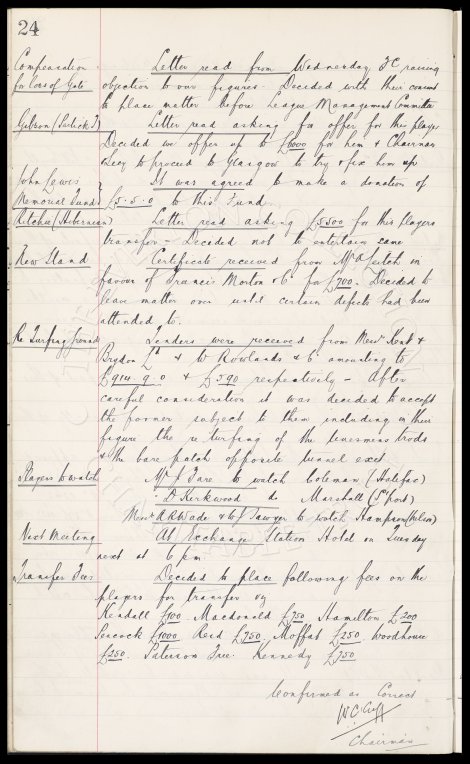 24
Compensation Letter read from Wednesday F.C. raising
for loss of Gate objection to our figures. Decided with their consent
to place matter before League Management Committee
Gibson (Partick T) Letter read asking for offer for this player
Decided we offer up to £6000 for him & Chairman
& Secy to proceed to Glasgow to try & fix him up
John Lewis It was agreed to make a donation of
Memorial Fund £5-5-0 to this Fund.
Ritchie (Hibernian) Letter read asking £5500 for this players
transfer - Decided not to entertain same
New Stand Certificate received from Mr A Leitch in
favour of Francis Morton & Co for £700. Decided to
leave matter over until certain defects had been
attended to.
Re Turfing ground Tenders were received from Messrs Kent &
Brydon Ld & W Rowlands & Co amounting to
£914 9.0 & £590 respectively - After
careful consideration it was decided to accept
the former subject to them including in their
figure the re turfing of the linesmens trods
& the bare patch opposite tunnel exit.
Players to watch Mr J Fare to watch Coleman (Halifax)
" D Kirkwood do Marshall (Sthport)
Messrs A R Wade & W J Sawyer to watch Hampson (Nelson)
Next Meeting At Exchange Station Hotel on Tuesday
next at 6 pm.
Transfer Fees Decided to place following fees on the
players for transfer viz
Kendall £100. Macdonald £750 Hamilton £200
Peacock £1000 Reid £750. Moffat £250. Woodhouse
£250. Paterson Free. Kennedy £750
Confirmed as Correct
W. C. Cuff
Chairman